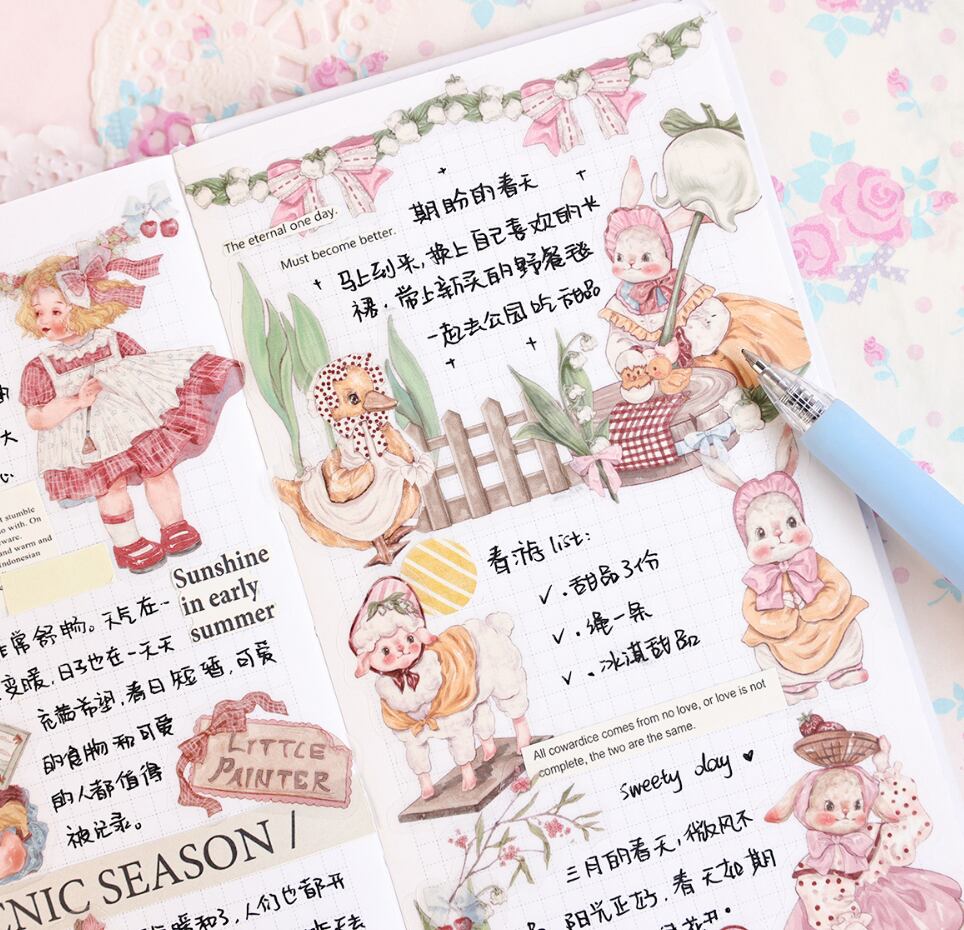 大
心
stumble
with. On
ware.
and warm and
Indonesian
Sunshine
in early
summer
常舒畅。天气在一
变暖,日子也在一天天
充满希望,春日短暂,可爱
的食物和可爱
的人都值得
被记录。
LITTLE
PAINTER
NIC SEASON /
暖和了,人们也都开
The eternal one day.
Must become better.
期盼的春天
马上到来,换上自己喜欢的长
裙,带上新买的野餐毯
一起去公园吃甜品
春游list:
✓.甜品3份
✓.绳一条
✓.冰淇甜品
All cowardice comes from no love, or love is not
complete, the two are the same.
sweety day ♥
三月的春天,微风不
阳光正好,春天如期
花开。